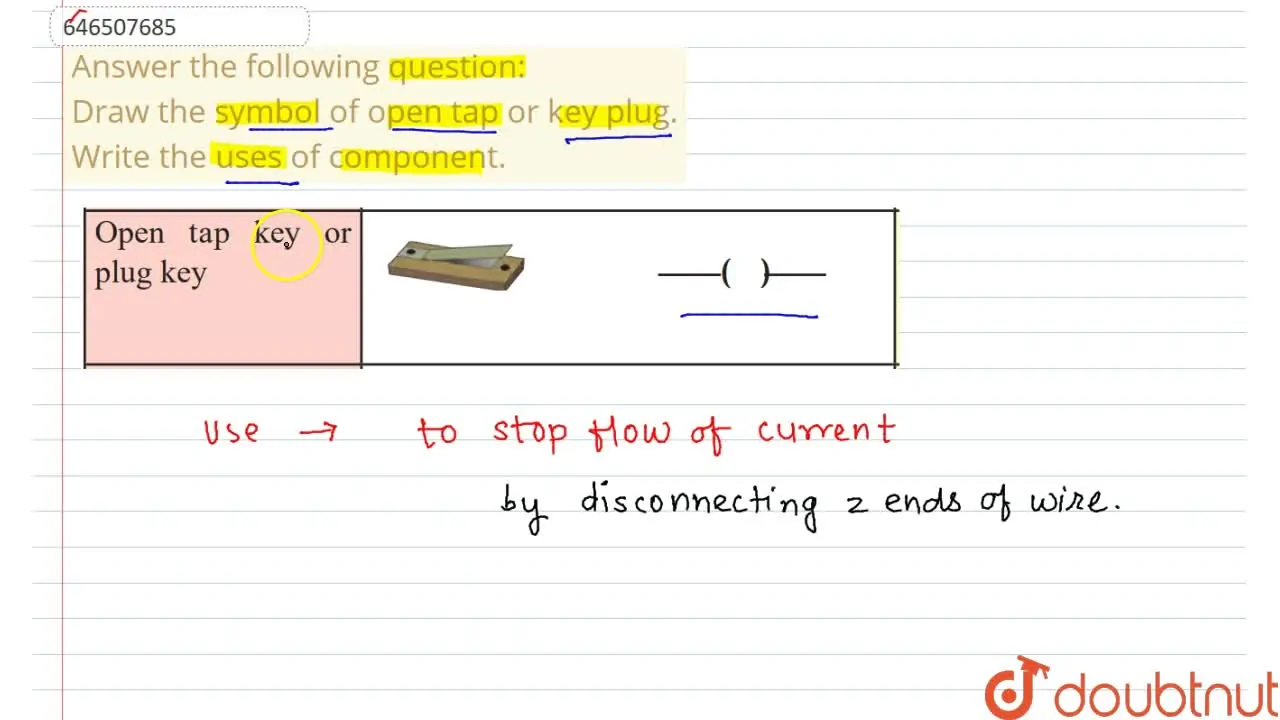 646507685
Answer the following question:
Draw the symbol of open tap or key plug.
Write the uses of component.
Open tap key or
plug key
( )
Use → to stop flow of current
by disconnecting 2 ends of wire.
doubtnut